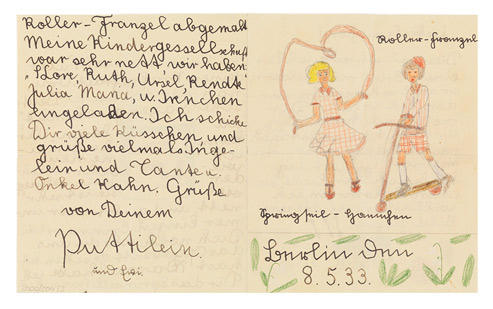 Roller-Franzel abgemalt
Meine Kindergesellschaft
war sehr nett wir haben:
Lore, Ruth, Ursel, Renate
Julia Maria, u. Irènchen
eingeladen. Ich schicke
Dir viele Küsschen und
grüße vielmals Inge-
lein und Tante u.
Onkel Hahn. Grüße
von Deinem
Puttilein.
und
Roller-Franzel
Springseil-Hannchen
Berlin den
8.5.33.